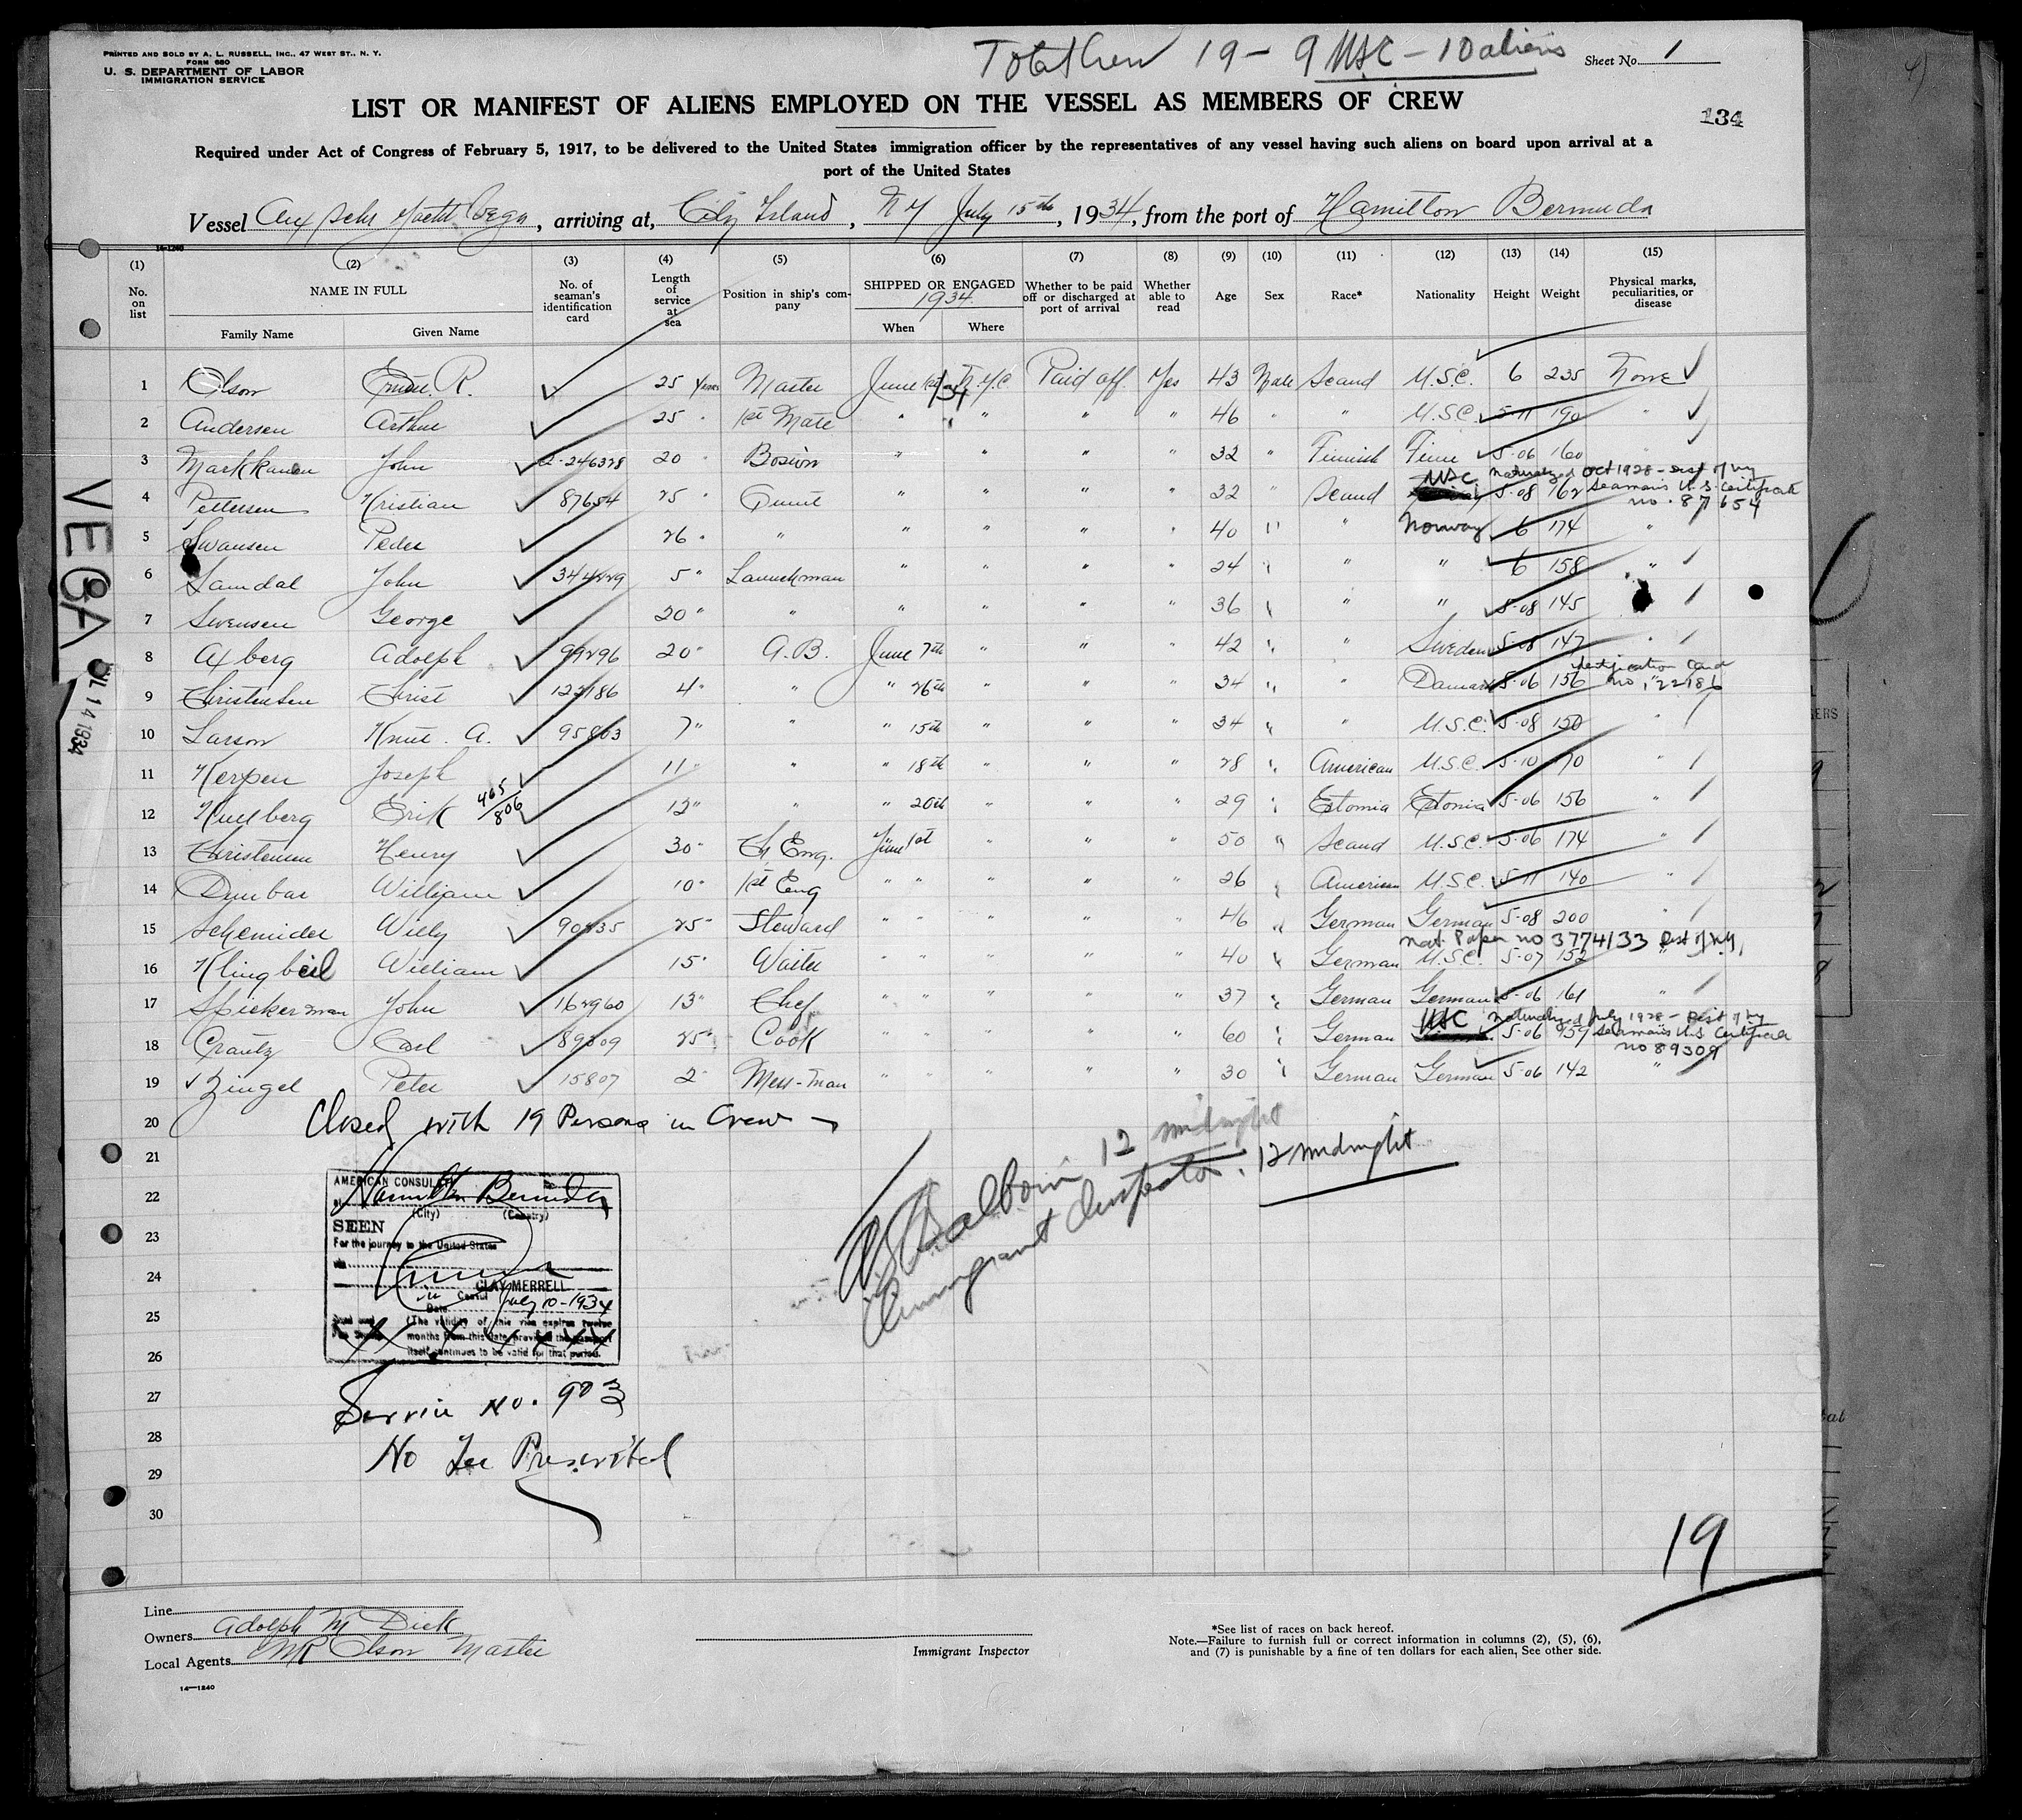 PRINTED AND SOLD BY A. L. RUSSELL, INC., 47 WEST ST., N. Y.
FORM 680
U. S. DEPARTMENT OF LABOR
IMMIGRATION SERVICE
Total Crew 19 - 9 USC - 10 aliens
Sheet No. 1
LIST OR MANIFEST OF ALIENS EMPLOYED ON THE VESSEL AS MEMBERS OF CREW
134
Required under Act of Congress of February 5, 1917, to be delivered to the United States immigration officer by the representatives of any vessel having such aliens on board upon arrival at a
port of the United States
Vessel Aux Schr Yacht Vega, arriving at, City Island, N Y July 15th, 1934, from the port of Hamilton Bermuda
14-1240
(1) (2) (3) (4) (5) (6) (7) (8) (9) (10) (11) (12) (13) (14) (15)
No. on list
NAME IN FULL
Family Name
Given Name
No. of seaman's identification card
Length of service at sea
Position in ship's company
SHIPPED OR ENGAGED
1934
When
Where
Whether to be paid off or discharged at port of arrival
Whether able to read
Age
Sex
Race*
Nationality
Height
Weight
Physical marks, peculiarities, or disease
1 Olson R. 25 years Master June 1st/34 N.Y.C. Paid off. Yes 43 Male Scand U.S.C. 6 235 None
2 Andersen Arthur 25 " 1st Mate " " " " 46 " " U.S.C. 5-11 190 "
3 Markkanen John 2-246328 20 " Bosion " " " " 32 " Finnish Finn 5-06 160
USC naturalized Oct 1928 - Dist of Ny
4 Pettersen Kristian 87654 25 " " " " " 32 " Scand 5-08 162 Seamans U.S. Certificate
no. 87654
5 Swansen Peder 26 " " " " " " 40 " " Norway 6 174 "
6 Samdal John 5 " Launchman " " " " 24 " " " 6 158 "
7 Swensen George 20 " " " " " " 36 " " " 5-08 145
8 Axberg Adolph 99296 20 " A.B. June 7th " " " 42 " " Sweden 5-08 147 "
Identification Card
9 Christensen Christ 122186 4 " " " 26th " " " 34 " " 5-06 156 no 122186
10 Larson Knut A. 95863 7 " " 15th " " " 34 " U.S.C. 5-08 150 "
11 Kerpen Joseph 11 " " " 18th " " " 28 " American U.S.C. 5-10 170 "
12 Erik 465/806 12 " " " 20th " " " 29 " Estonia Estonia 5-06 156 "
13 Christensen Henry 30 " Ch Eng. June 1st " " " 50 " Scand U.S.C. 5-06 174 "
14 Dunbar William 10 " 1st Eng " " " " " 26 " American U.S.C. 5-11 140 "
15 Schemider Willy 25 " Steward " " " " " 46 " German German 5-08 200 "
nat. Paper no 3774133 Dist of Ny,
16 Klingbeil William 15 " Waiter " " " " " 40 " German U.S.C. 5-07 152 "
17 Spiekerman John 162960 13 " Chef " " " " " 37 " German German 5-06 161 "
USC naturalized July 1928 - Dist of Ny
18 Crantz Carl 89309 25 " Cook " " " " " 60 " German 5-06 157 Seamans U.S Certificate
no 89309
19 Zingel Peter 15807 2 " Mess-man " " " " " 30 " German German 5-06 142 "
20 Closed with 19 Persons in Crew
21
22
23
24
25
26
27
28
29
30
VEGA
JUL 14 1934
12 midnight
12 midnight
Immigrant Inspector.
AMERICAN CONSULATE
at Hamilton Bermuda
(City) (Country)
SEEN
For the journey to the United States
via
CLAY MERRELL
Consul
Date July 10-1934
(The validity of this visa expires twelve
months from this date provided the passport
itself continues to be valid for that period.
Service No. 903
No Fee Prescribed
19
Line
Owners Adolph M Dick
Local Agents Olson Master
Immigrant Inspector
*See list of races on back hereof.
Note.—Failure to furnish full or correct information in columns (2), (5), (6),
and (7) is punishable by a fine of ten dollars for each alien. See other side.
14—1240